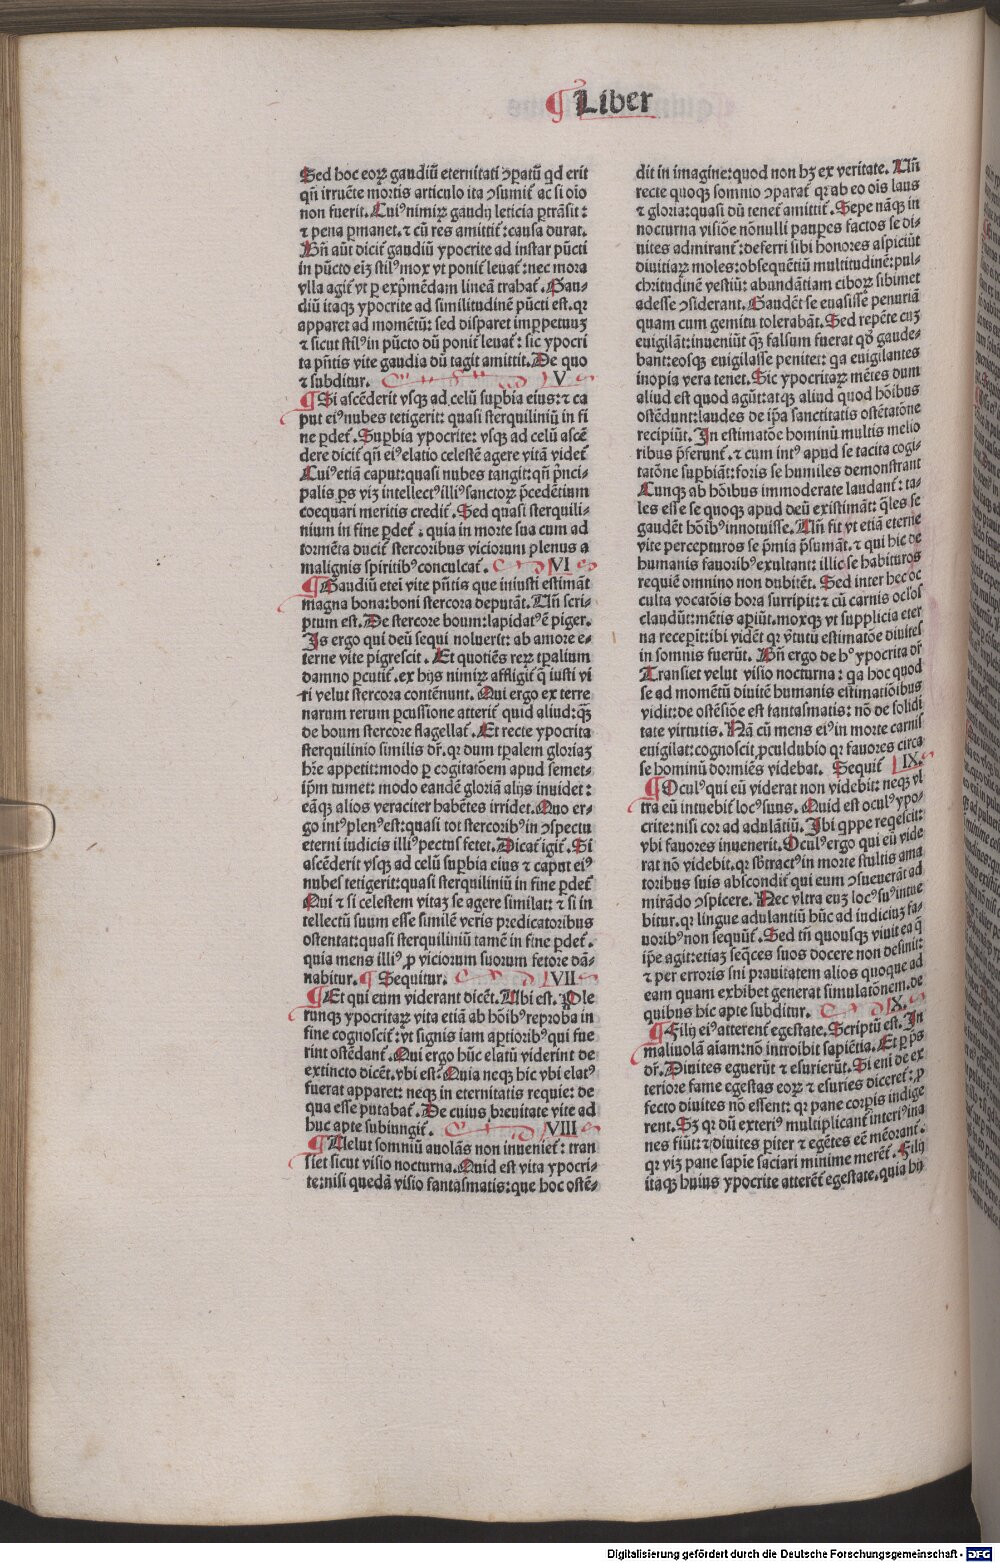 ¶ Liber
Sed hoc eoꝝ gaudiū eternitati ↄpatū qd erit
qñ irruēte mortis articulo ita ↄsumit̄ ac si oīo
non fuerit. Cuiꝰ nimiꝝ gaudij leticia ꝑtrāsit:
⁊ pena ꝑmanet. ⁊ cū res amittit̄: causa durat.
Bñ aūt dicit̄ gaudiū ypocrite ad instar pūcti
in pūcto eīꝫ stilꝰ mox vt ponit̄ leuat̄: nec mora
vlla agit̄ vt ꝑ exp̄mēdam lineā trahat̄. Gau-
diū itaqꝫ ypocrite ad similitudinē pūcti est. qꝛ
apparet ad momētū: sed disparet imꝑpetuuꝫ
⁊ sicut stilꝰ in pūcto dū ponit̄ leuat̄: sic ypocri
ta pñtis vite gaudia dū tagit amittit. De quo
⁊ subditur. V
¶ Si ascēderit vsqꝫ ad celū suꝑbia eius: ⁊ ca
put eiꝰ nubes tetigerit: quasi sterquiliniū in fi
ne ꝑdet̄. Suꝑbia ypocrite: vsqꝫ ad celū ascē
dere dicit̄ qñ eiꝰ elatio celestē agere vitā videt̄
Cuiꝰ etiā caput: quasi nubes tangit: qñ p̄nci-
palis ꝑs viꝫ intellectꝰ illiꝰ sanctoꝝ p̄cedētium
coequari meritis credit̄. Sed quasi sterquili-
nium in fine ꝑdet̄: quia in morte sua cum ad
tormēta ducit̄ stercoribus viciorum plenus a
malignis spiritibꝰ conculcat̄. VI
¶ Gaudiū eteī vite pñtis que iniusti estimāt
magna bona: boni stercora deputāt. Uñ scri-
ptum est. De stercore boum: lapidatꝰ ē piger.
Is ergo qui deū sequi noluerit: ab amore e-
terne vite pigrescit. Et quotiēs reꝝ tꝑalium
damno ꝑcutit̄. ex hijs nimiꝝ affligit̄ q̄ iusti vi
ri velut stercora contēnunt. Qui ergo ex terre
narum rerum ꝑcussione atterit̄ quid aliud: q̄ꝫ
de boum stercore flagellat̄. Et recte ypocrita
sterquilinio similis dr̄. qꝛ dum tꝑalem gloriaꝫ
hr̄e appetit: modo ꝑ cogitatōem apud semet-
ip̄m tumet: modo eandē gloriā alijs inuidet:
eāqꝫ alios veraciter habētes irridet. Quo er-
go intꝰ plenꝰ est: quasi tot stercoribꝰ in ↄspectu
eterni iudicis illiꝰ pectus fetet. Dicat̄ igit̄. Si
ascēderit vsqꝫ ad celū suꝑbia eius ⁊ caput eiꝰ
nubes tetigerit: quasi sterquiliniū in fine ꝑdet̄
Qui ⁊ si celestem vitaꝫ se agere similat: ⁊ si in
tellectū suum esse similē veris predicatoribus
ostentat: quasi sterquiliniū tamē in fine ꝑdet̄.
quia mens illiꝰ ꝓ viciorum suorum fetore dā-
nabitur. ¶ Sequitur. VII
¶ Et qui eum viderant dicēt. Ubi est. Ple
runqꝫ ypocritaꝝ vita etiā ab hōibꝰ reproba in
fine cognoscit̄: vt signis iam aꝑtioribꝰ qui fue
rint ostēdant̄. Qui ergo hūc elatū viderint de
extincto dicēt. vbi est: Quia neqꝫ hic vbi elatꝰ
fuerat apparet: neqꝫ in eternitatis requie: de
qua esse putabat̄. De cuius breuitate vite ad
huc apte subiungit̄. VIII
¶ Uelut somniū auolās non inueniet̄: tran
siet sicut visio nocturna. Quid est vita ypocri-
te: nisi quedā visio fantasmatis: que hoc ostē-
dit in imagine: quod non hꝫ ex veritate. Uñ
recte quoqꝫ somnio ↄparat̄ qꝛ ab eo oīs laus
⁊ gloria: quasi dū tenet̄ amittit̄. Sepe nāqꝫ in
nocturna visiōe nōnulli pauꝑes factos se di-
uites admirant̄: deferri sibi honores aspiciūt
diuitiaꝝ moles: obsequētiū multitudinē: pul-
chritudinē vestiū: abundātiam ciboꝝ sibimet
adesse ↄsiderant. Gaudēt se euasisse penuriā
quam cum gemitu tolerabāt. Sed repēte cuꝫ
euigilāt: inueniūt q̄ꝫ falsum fuerat qď gaude-
bant: eosqꝫ euigilasse penitet: qa euigilantes
inopia vera tenet. Sic ypocritaꝝ mētes dum
aliud est quod agūt: atqꝫ aliud quod hōibus
ostēdunt: laudes de ip̄a sanctitatis ostētatōne
recipiūt. In estimatōe hominū multis melio
ribus p̄ferunt̄. ⁊ cum intꝰ apud se tacita cogi-
tatōne suꝑbiāt: foris se humiles demonstrant
Cunqꝫ ab hōibus immoderate laudant̄: ta-
les esse se quoqꝫ apud deū existimāt: q̄les se
gaudēt hōibꝰ innotuisse. Uñ fit vt etiā eterne
vite percepturos se p̄mia p̄sumāt. ⁊ qui hic de
humanis fauoribꝰ exultant: illic se habituros
requiē omnino non dubitēt. Sed inter hec oc
culta vocatōis hora surripit: ⁊ cū carnis ocľos
claudūt: mētis aꝑiūt. moxqꝫ vt supplicia eter
na receꝑit: ibi vidēt qꝛ v̄tutū estimatōe diuites
in somnis fuerūt. Bñ ergo de hꝰ ypocrita dr̄
Transiet velut visio nocturna: qa hoc quod
se ad momētū diuitē humanis estimatiōibus
vidit: de ostēsiōe est fantasmatis: nō de solidi
tate virtutis. Nā cū mens eiꝰ in morte carnis
euigilat: cognoscit ꝓculdubio qꝛ fauores circa
se hominū dormiēs videbat. Sequit̄ IX.
¶ Oculꝰ qui eū viderat non videbit: neqꝫ vl
tra eū intuebit̄ locꝰ suus. Quid est oculꝰ ypo-
crite: nisi cor ad adulātiū. Ibi qppe reqescit:
vbi fauores inuenerit. Oculꝰ ergo qui eū vide
rat nō videbit. qꝛ sb̄tractꝰ in morte stultis ama
toribus suis abscondit̄ qui eum ↄsueuerāt ad
mirādo ↄspicere. Nec vltra euꝫ locꝰ suꝰ intue
bitur. qꝛ lingue adulantiū hūc ad iudiciuꝫ fa-
uoribꝰ non sequūt̄. Sed tñ quousqꝫ viuit ea q̄
ip̄e agit: etiaꝫ seq̄ces suos docere non desinit:
⁊ per erroris sui prauitatem alios quoque ad
eam quam exhibet generat simulatōnem. de
quibus hic apte subditur. X.
¶ Filij eiꝰ atterent̄ egestate. Scriptū est. In
maliuolā aīam: nō introibit sapiētia. Et ꝑ p̄s
dr̄. Diuites eguerūt ⁊ esurierūt. Si enī de ex
teriore fame egestas eoꝝ ⁊ esuries diceret̄: ꝓ
fecto diuites nō essent: qꝛ pane corꝑis indige
rent. Sꝫ qꝛ dū exteriꝰ multiplicant̄ interiꝰ ina
nes fiūt: ⁊ diuites ꝑiter ⁊ egētes eē mēorant̄.
qꝛ viꝫ pane sapie saciari minime merēt̄. Filij
itaqꝫ huius ypocrite atterēt̄ egestate. quia hij
Digitalisierung gefördert durch die Deutsche Forschungsgemeinschaft - DFG